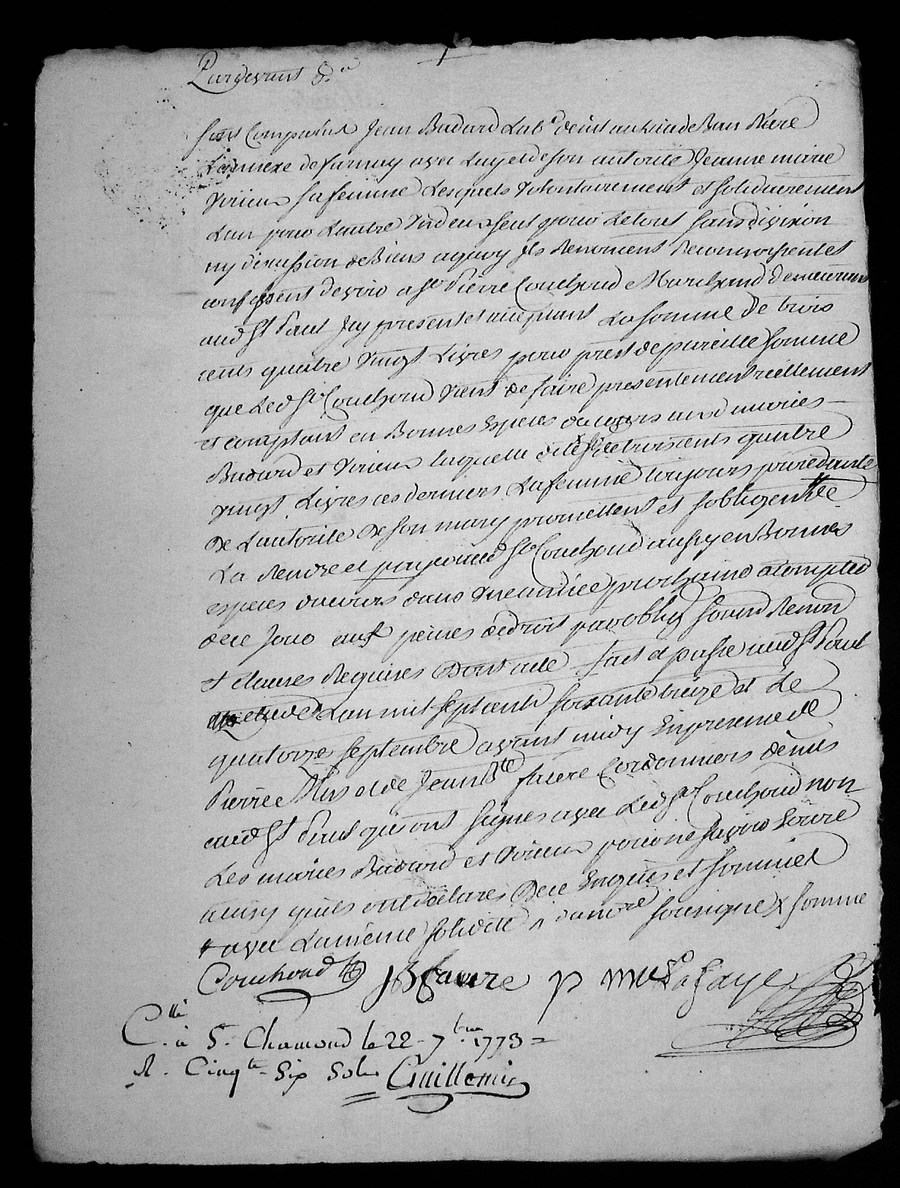 Pardevant &a
Sont Comparus Jean Badard Lab.r de
Lannexe de farnay avec Luy et de son autorité Jeanne marie
virieux sa femme Lesquels volontairement et solidairement
Lun pour Lautre un deux seul pour Letout sans division
ny discussion de Biens aquoy ils Renoncent Reconnoissent et
confessent devoir a sr Pierre Couchoud Marchand demeurant
aud St Paul Icy present et acceptant La somme de trois
cents quatre vingt Livres pour prest de pareille somme
que Led sr Couchoud vient de faire presentement reellement
et comptant en Bonnes Especes du cours aux d mariés
Badard et virieux laquelle dite sme de trois cents quatre
vingt Livres ces derniers La femme toujours procedante
de Lautorité de son mary promettent et sobligent +
La Rendre et payer aud sr Couchoud aussy en Bonnes
especes du cours dans une année prochaine a compter
de ce Jour aux peines de droit par oblig soumd Renon
et clauses Requises Dont acte fait et passé aud St Paul
etude Lan mil sept cent soixante treize et Le
quatorze septembre avant midy En presence de
Pierre et de Jean Bte faure Cordonniers demts
aud St Paul qui ont signés avec Led sr Couchoud non
Les mariés Badard et virieux pour ne savoir Ecrire
ainsy quils ont déclaré De ce Enquis et sommés
+ avec La meme solidité somme
Couchoud JB faure p Lafaye
C.llé à St. Chamond le 22 7bre 1773
R. Cinqte Six Sols Guillemin